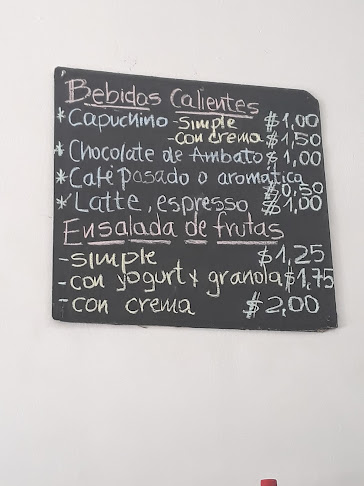 Bebidas Calientes
*Capuchino -Simple $1,00
-con crema $1,50
*Chocolate de Ambato $1,00
*Café pasado o aromática
$0,50
*Latte, espresso $1,00
Ensalada de frutas
-simple $1,25
-con yogurt y granola $1,75
-con crema $2,00